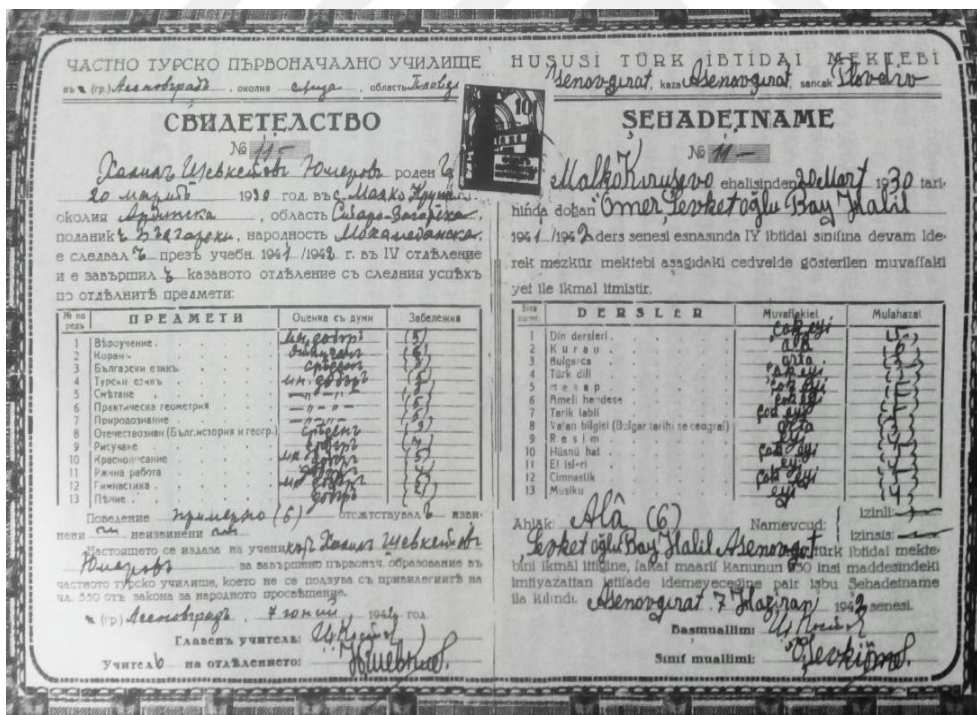 ЧАСТНО ТУРСКО ПЪРВОНАЧАЛНО УЧИЛИЩЕ
въ (гр.) Асеновградъ, околия сѫща, область Пловдив
СВИДЕТЕЛСТВО
№ 11-
Халилъ Шевкетовъ Юмеровъ роденъ
20 мартъ 1930 год. въ с. Малко Круш
околия , область Старо-Загорска,
поданикъ Български, народность Мохамеданска
е следвалъ презъ учебн. 1941/1942 г. въ IV отдѣление
и е завършилъ казаното отдѣление съ следния успѣхъ
по отдѣлнитѣ предмети:
№ по редъ ПРЕДМЕТИ Оценка съ думи Забележка
1 Вѣроучение. мн. добръ (5)
2 Коранъ. отличенъ (6)
3 Български езикъ. срѣденъ (3)
4 Турски езикъ. мн. добъръ (5)
5 Смѣтане -"-"- (5)
6 Практическа геометрия -"-"- (5)
7 Природознание -"-"- (5)
8 Отечествознан (Бълг. история и геогр.) срѣденъ (3)
9 Рисуване добъръ (4)
10 Краснописание мн. добръ (5)
11 Рѫчна работа добръ (4)
12 Гимнастика мн. добръ (5)
13 Пѣние добръ (4)
Поведение примерно (6) отсѫтствувалъ изви-
нени неизвинени
Настоящето се издава на ученикъ Халилъ Шевкетовъ
Юмеровъ за завършено първонач. образование въ
частното турско училище, което не се ползува съ привилегиитѣ на
чл. 550 отъ закона за народното просвѣщение.
(гр) Асеновградъ, 7 юний 1942 год
Главенъ учитель:
Учитель на отдѣлението:
10
HUSUSI TÜRK İBTİDAİ MEKTEBİ
Asenovgırat, kaza Asenovgırat, sancak Plovdiv
ŞEHADETNAME
№ 11-
Malko Kruşevo ehalisinden 20 Mart 1930 tari-
hinda doğan Ömer Şevket oğlu Bay Halil
1941/1942 ders senesi esnasında IV ibtidai sınıfına devam ide-
rek mezkür mektebi asagidaki cedvelde gösterilen muvaffaki
yet ile ikmal itmistir.
Sıra DERSLER Muvaffakiet Mulahazat
1 Din dersleri. çok eyi 5
2 Kurau. alâ 6
3 Bulgarca orta 3
4 Türk dili çok eyi 5
5 Hesap çok eyi 5
6 Ameli hendese çok eyi 5
7 Tarik tabii çok eyi 5
8 Vatan bilgisi (Bulgar tarihi se ceograi) orta 3
9 Resim eyi 4
10 Hüsnü hat çok eyi 5
11 El isl-ri eyi 4
12 Cimnastik çok eyi 5
13 Musiku eyi 4
Ahlak: Alâ (6) Namevcud: izinli:
izinsis:
Şevket oğlu Bay Halil Asenovgrat türk ibtidai mekte-
bini ikmâl ittigine, fakat maarif kanunun 550 insi maddesindeki
imtiyazattan istifade idemeyeceğine pair işbu Şehadetname
ita kılındı. Asenovgırat 7 Haziran 1942 senesi.
Basmuallimi:
Sınıf muallimi: